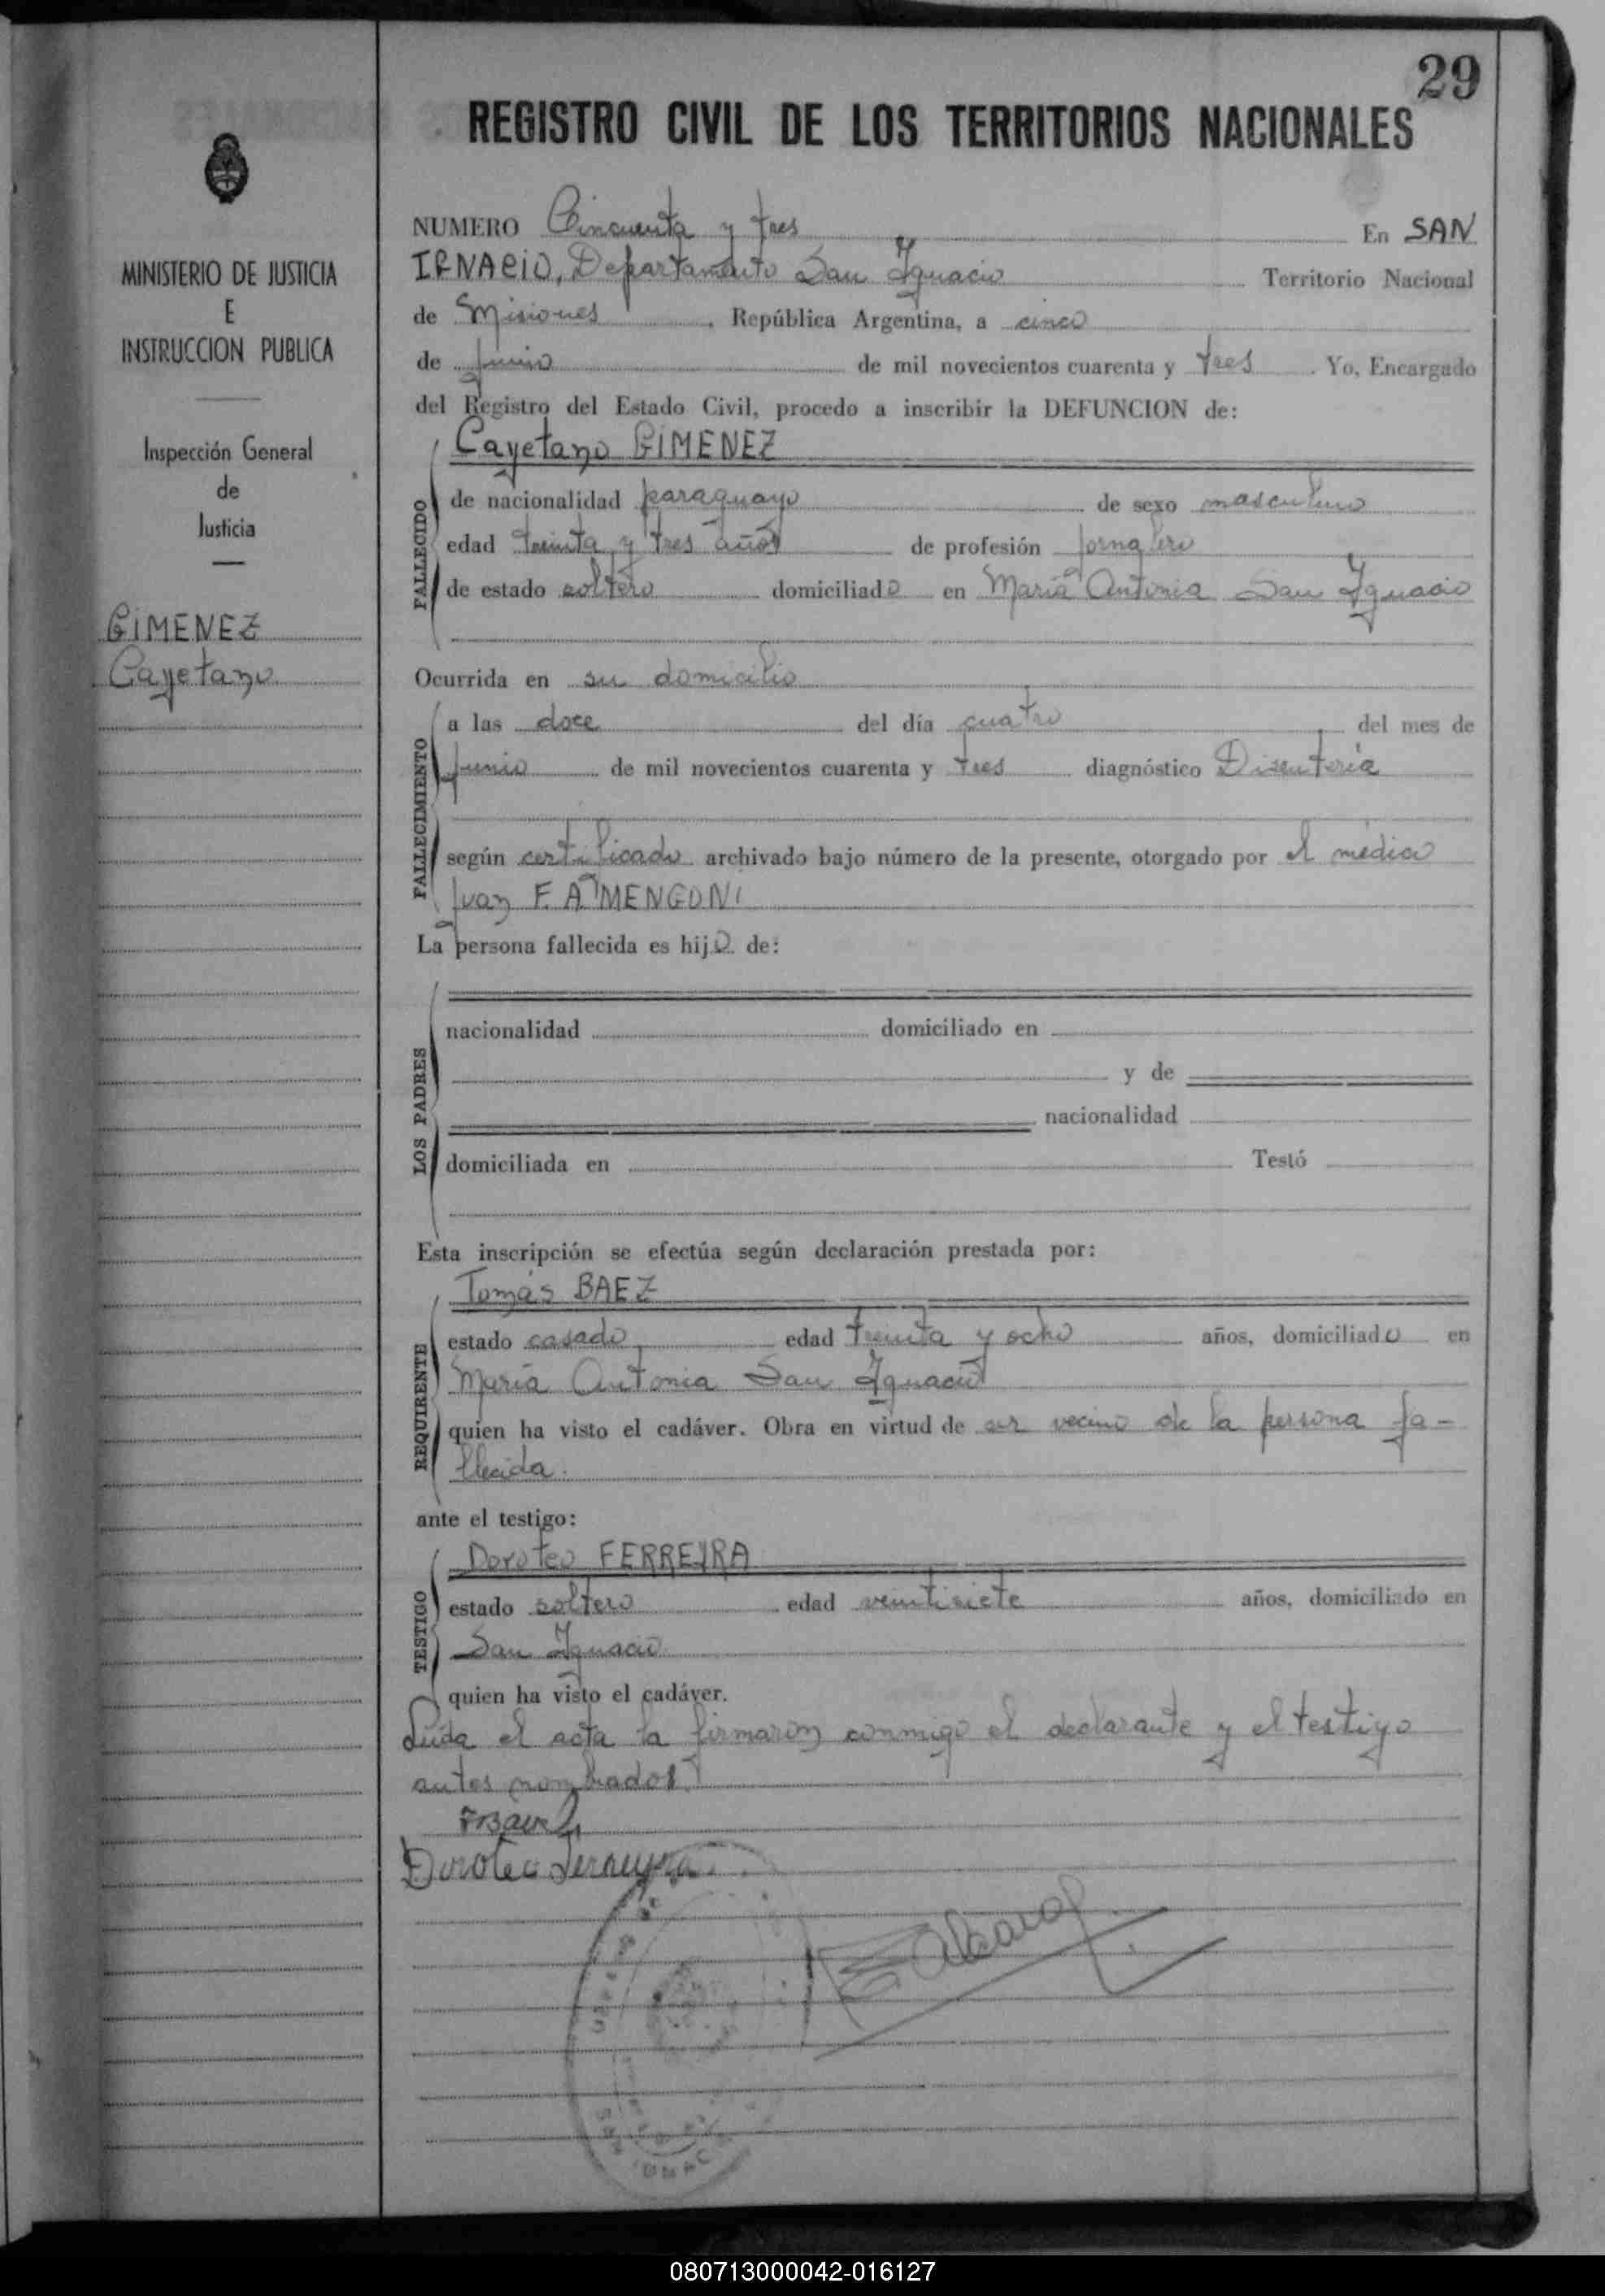 29
REGISTRO CIVIL DE LOS TERRITORIOS NACIONALES
MINISTERIO DE JUSTICIA
E
INSTRUCCION PUBLICA
Inspección General
de
Justicia
GIMENEZ
Cayetano
NUMERO Cincuenta y tres En SAN
IGNACIO, Departamento San Ignacio Territorio Nacional
de Misiones, República Argentina, a cinco
de junio de mil novecientos cuarenta y tres. Yo, Encargado
del Registro del Estado Civil, procedo a inscribir la DEFUNCION de:
Cayetano GIMENEZ
FALLECIDO
de nacionalidad paraguayo de sexo masculino
edad treinta y tres años de profesión jornalero
de estado soltero domiciliado en María Antonia San Ignacio
Ocurrida en su domicilio
FALLECIMIENTO
a las doce del día cuatro del mes de
junio de mil novecientos cuarenta y tres diagnóstico Disentería
según certificado archivado bajo número de la presente, otorgado por el médico
Juan F. A. MENGONI
La persona fallecida es hijo de:
LOS PADRES
nacionalidad domiciliado en
y de
nacionalidad
domiciliada en Testó
Esta inscripción se efectúa según declaración prestada por:
Tomás BAEZ
REQUIRENTE
estado casado edad treinta y ocho años, domiciliado en
María Antonia San Ignacio
quien ha visto el cadáver. Obra en virtud de ser vecino de la persona fa-
llecida.
ante el testigo:
Doroteo FERREYRA
TESTIGO
estado soltero edad veintisiete años, domiciliado en
San Ignacio
quien ha visto el cadáver.
Leída el acta la firmaron conmigo el declarante y el testigo
antes nombrados
Doroteo Ferreyra
080713000042-016127